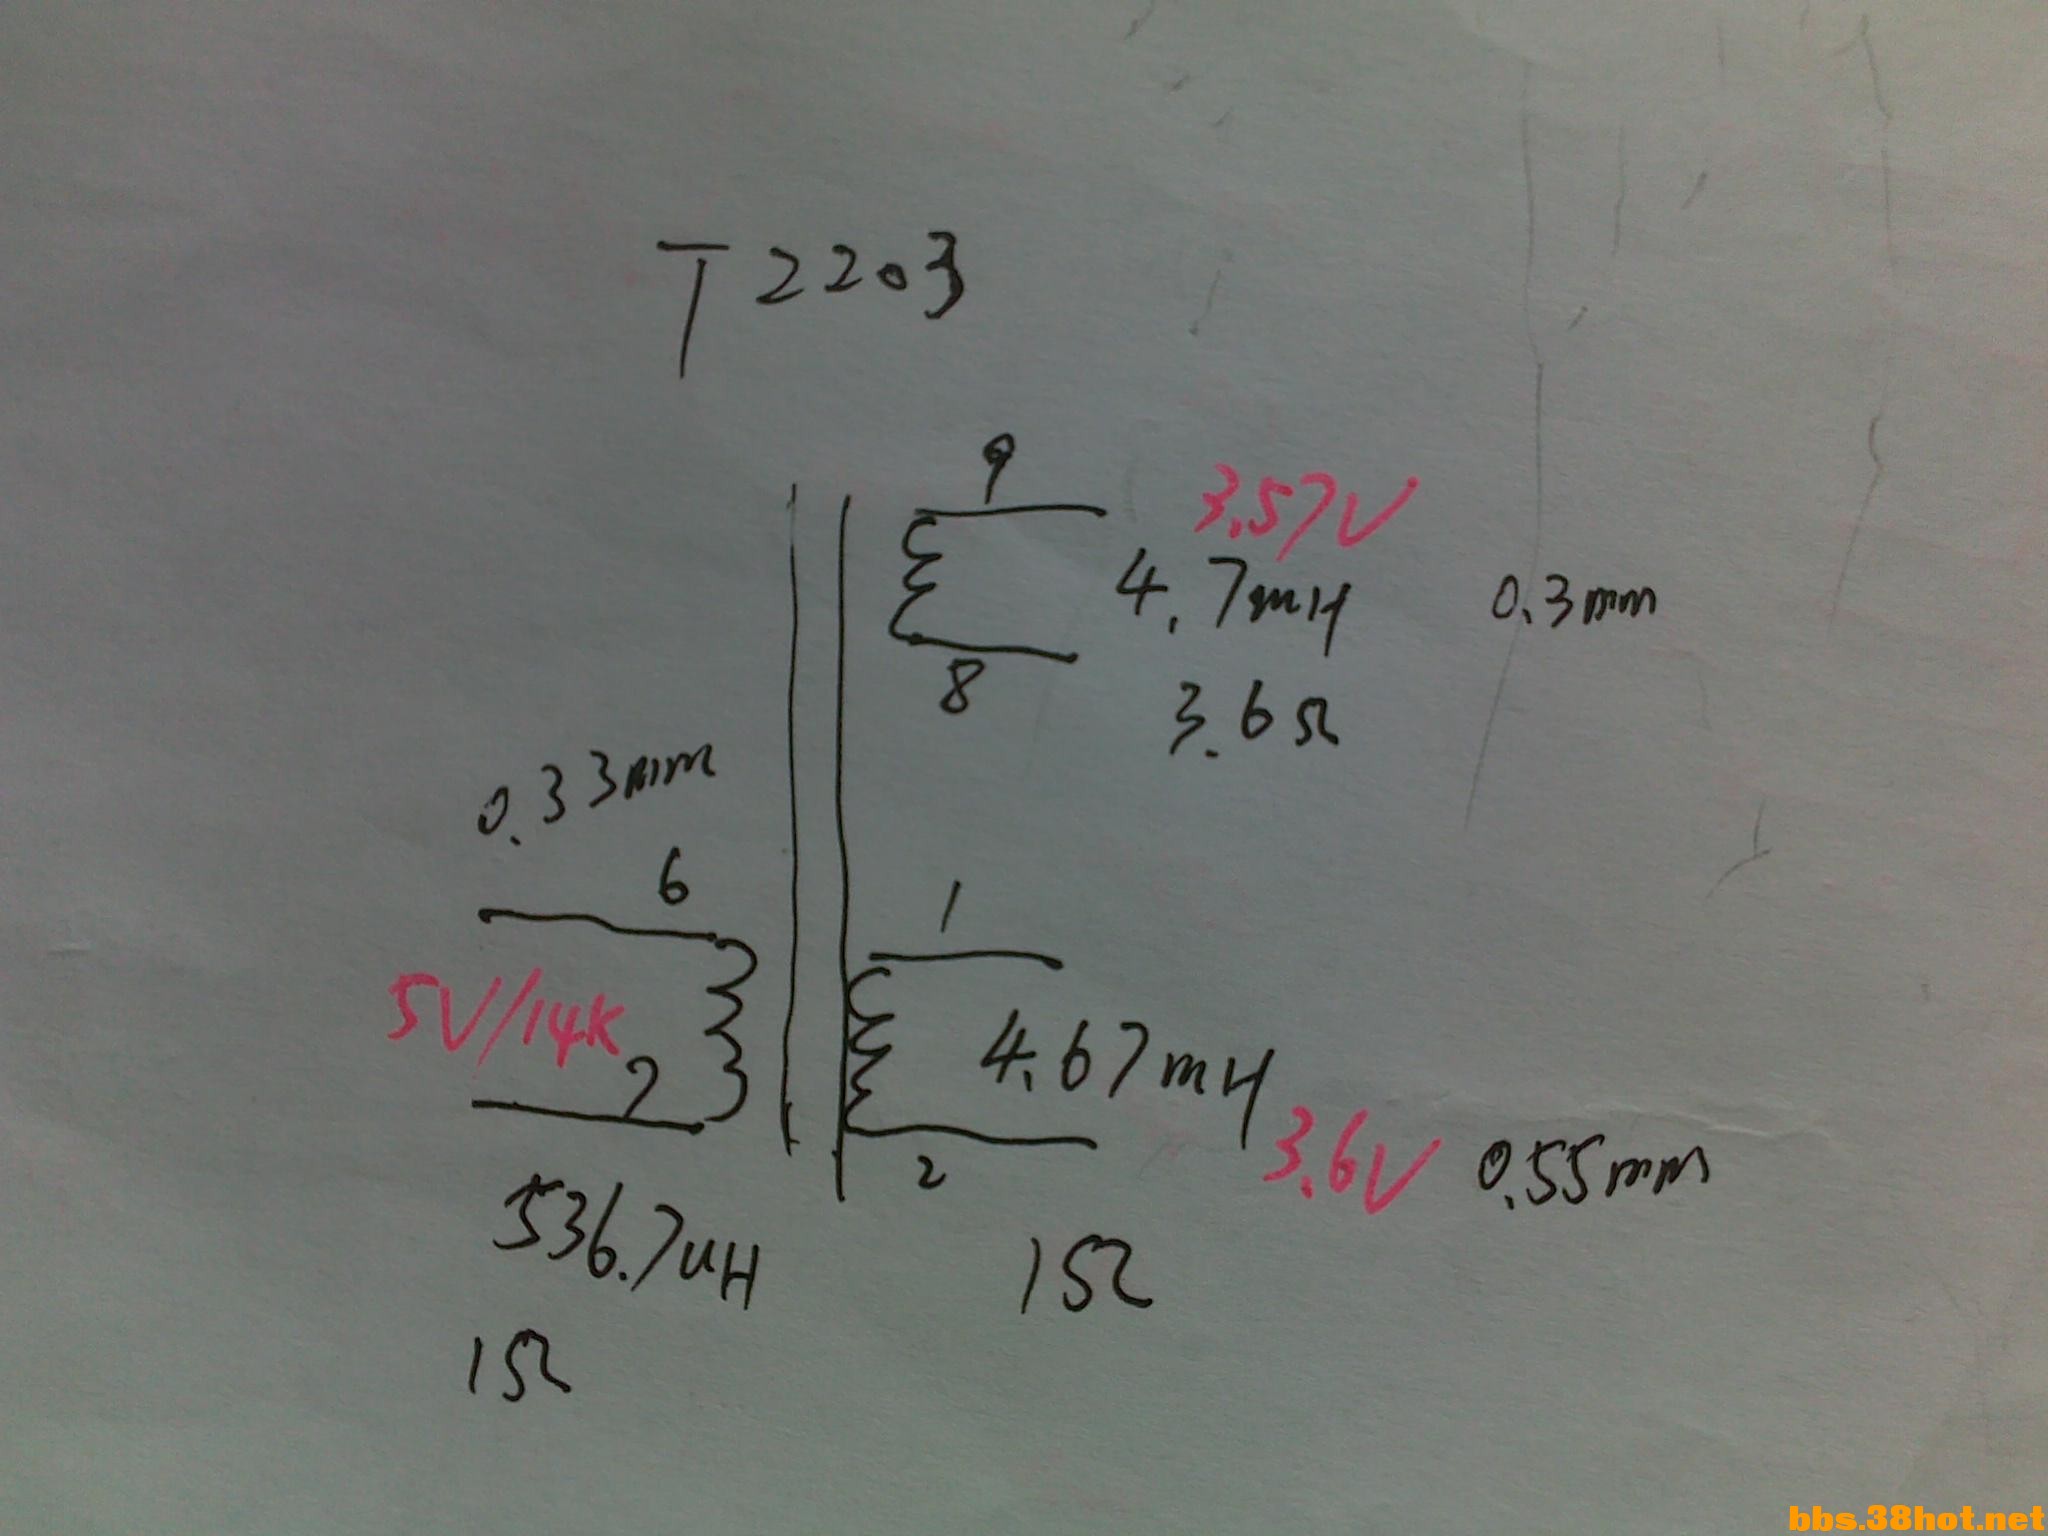 T2203
9
3.57V
4.7mH
0.3mm
8
3.6Ω
0.33mm
6
1
5V/14K
7
4.67mH
2
3.6V
0.55mm
536.7uH
1Ω
1Ω
bbs.38hot.net